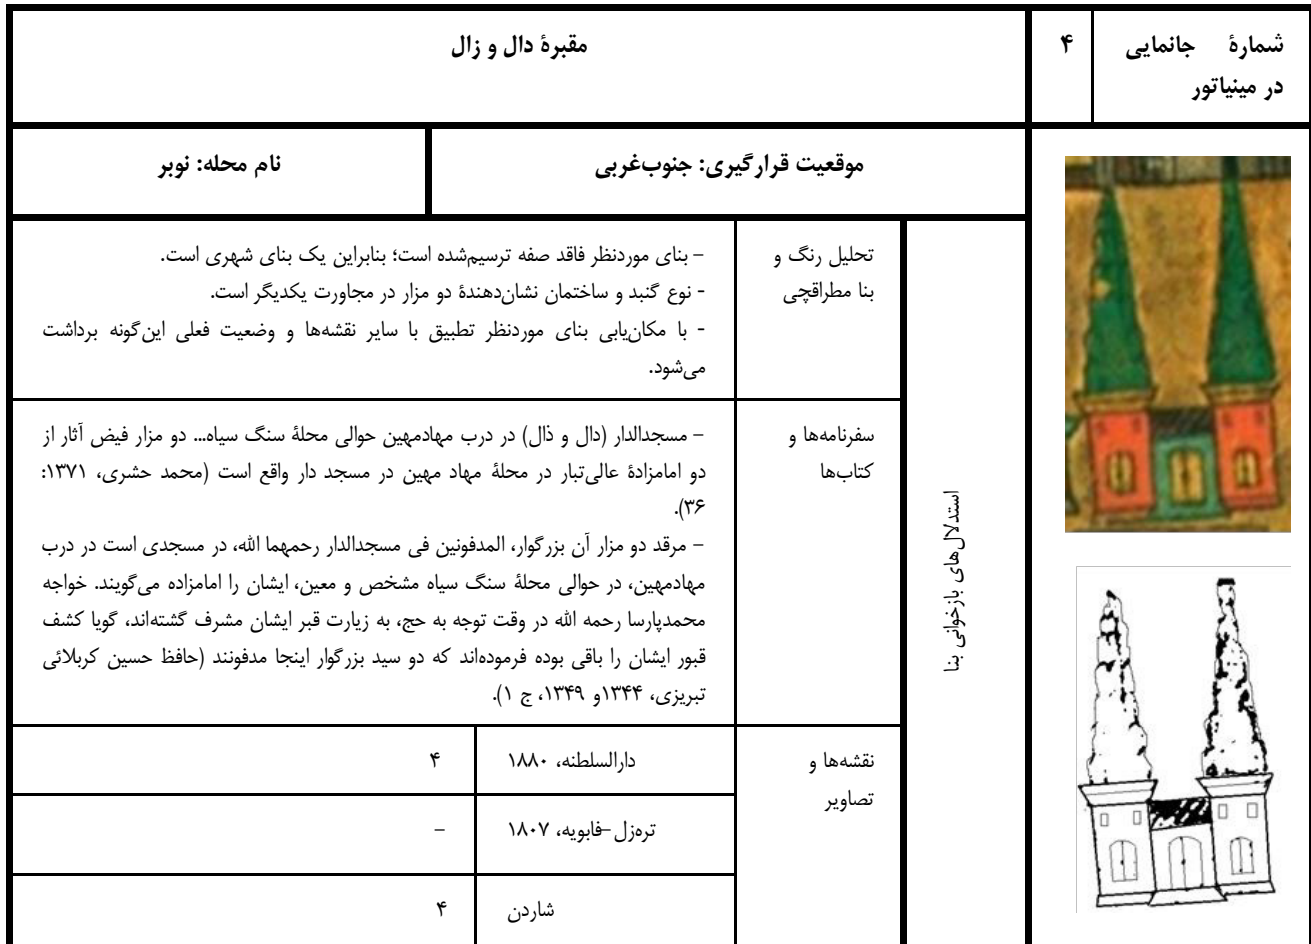 شمارهٔ جانمایی
در مینیاتور
۴
مقبرهٔ دال و زال
موقعیت قرارگیری: جنوب‌غربی
نام محله: نوبر
استدلال‌های بازخوانی بنا
تحلیل رنگ و
بنا مطراقچی
– بنای موردنظر فاقد صفه ترسیم‌شده است؛ بنابراین یک بنای شهری است.
- نوع گنبد و ساختمان نشان‌دهندهٔ دو مزار در مجاورت یکدیگر است.
- با مکان‌یابی بنای موردنظر تطبیق با سایر نقشه‌ها و وضعیت فعلی این‌گونه برداشت
می‌شود.
سفرنامه‌ها و
کتاب‌ها
– مسجدالدار (دال و ذال) در درب مهادمهین حوالی محلهٔ سنگ سیاه... دو مزار فیض آثار از
دو امامزادهٔ عالی‌تبار در محلهٔ مهاد مهین در مسجد دار واقع است (محمد حشری، ۱۳۷۱:
۳۶).
– مرقد دو مزار آن بزرگوار، المدفونین فی مسجدالدار رحمهما الله، در مسجدی است در درب
مهادمهین، در حوالی محلهٔ سنگ سیاه مشخص و معین، ایشان را امامزاده می‌گویند. خواجه
محمدپارسا رحمه الله در وقت توجه به حج، به زیارت قبر ایشان مشرف گشته‌اند، گویا کشف
قبور ایشان را باقی بوده فرموده‌اند که دو سید بزرگوار اینجا مدفونند (حافظ حسین کربلائی
تبریزی، ۱۳۴۴و ۱۳۴۹، ج ۱).
نقشه‌ها و
تصاویر
دارالسلطنه، ۱۸۸۰
۴
تره‌زل-فابویه، ۱۸۰۷
–
شاردن
۴